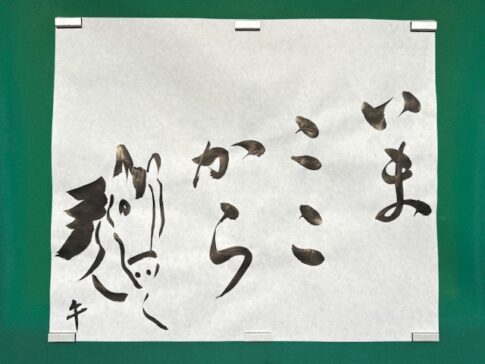 いま
ここ
から
午